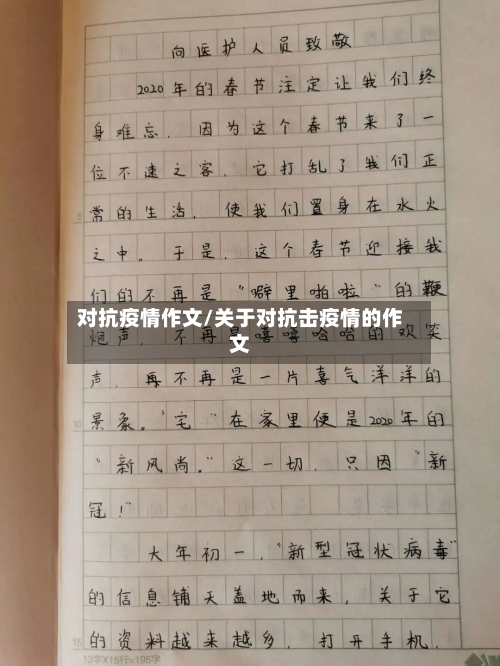 向医护人员致敬
2020年的春节注定让我们终
身难忘.因为这个春节来了一
位不速之客.它打乱了我们正
常的生活.使我们置身在水火
之中。于是.这个春节迎接我
们的不再是"噼里啪啦"的鞭
对抗疫情作文/关于对抗击疫情的作
文
炮声.不再是嘻嘻哈哈的欢笑
声.再不再是一片喜气洋洋的
景象。"宅"在家里便是2020年的
"新风尚。"这一切.只因"新
冠!"
大年初一."新型冠状病毒"
的信息铺天盖地而来,关于它
的资料越来越多.打开手机.
5
10
15
13字X15行=195字